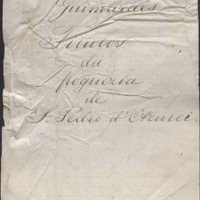 Guimarães
Titulos
da
freguezia
de
S. Pedro d'Azurei.